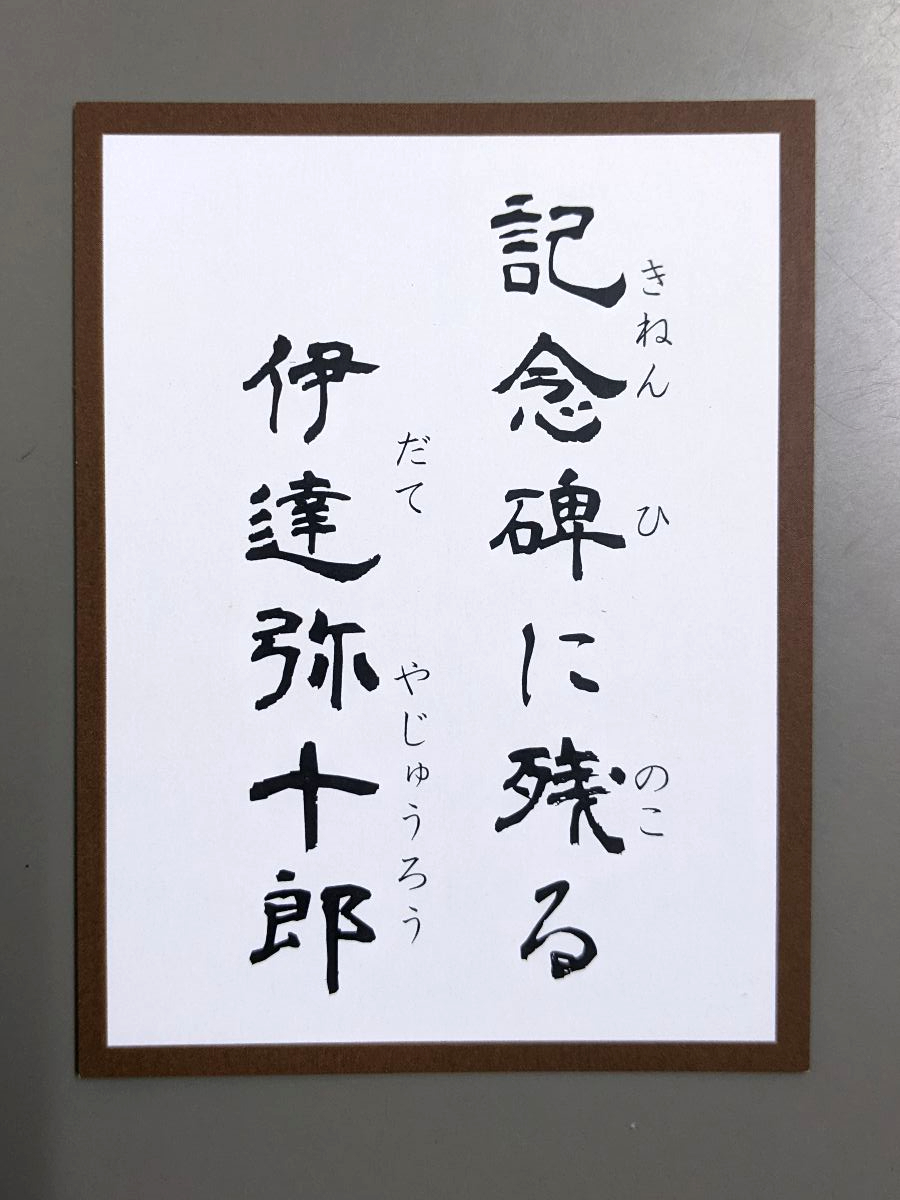 記念碑に残る
きねん ひ のこ
伊達弥十郎
だて やじゅうろう